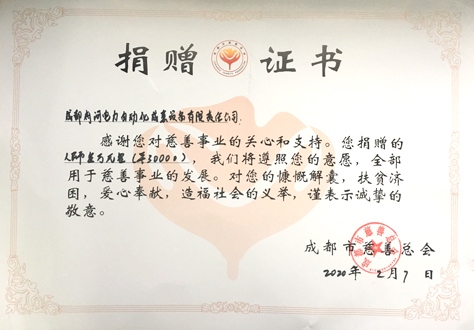 捐赠证书
成都府河电力自动化成套设备有限责任公司:
感谢您对慈善事业的关心和支持。您捐赠的
人民币叁万元整(¥30000),我们将遵照您的意愿,全部
用于慈善事业的发展。对您的慷慨解囊,扶贫济
困,爱心奉献,造福社会的义举,谨表示诚挚的
敬意。
成都市慈善总会
2020年2月7日